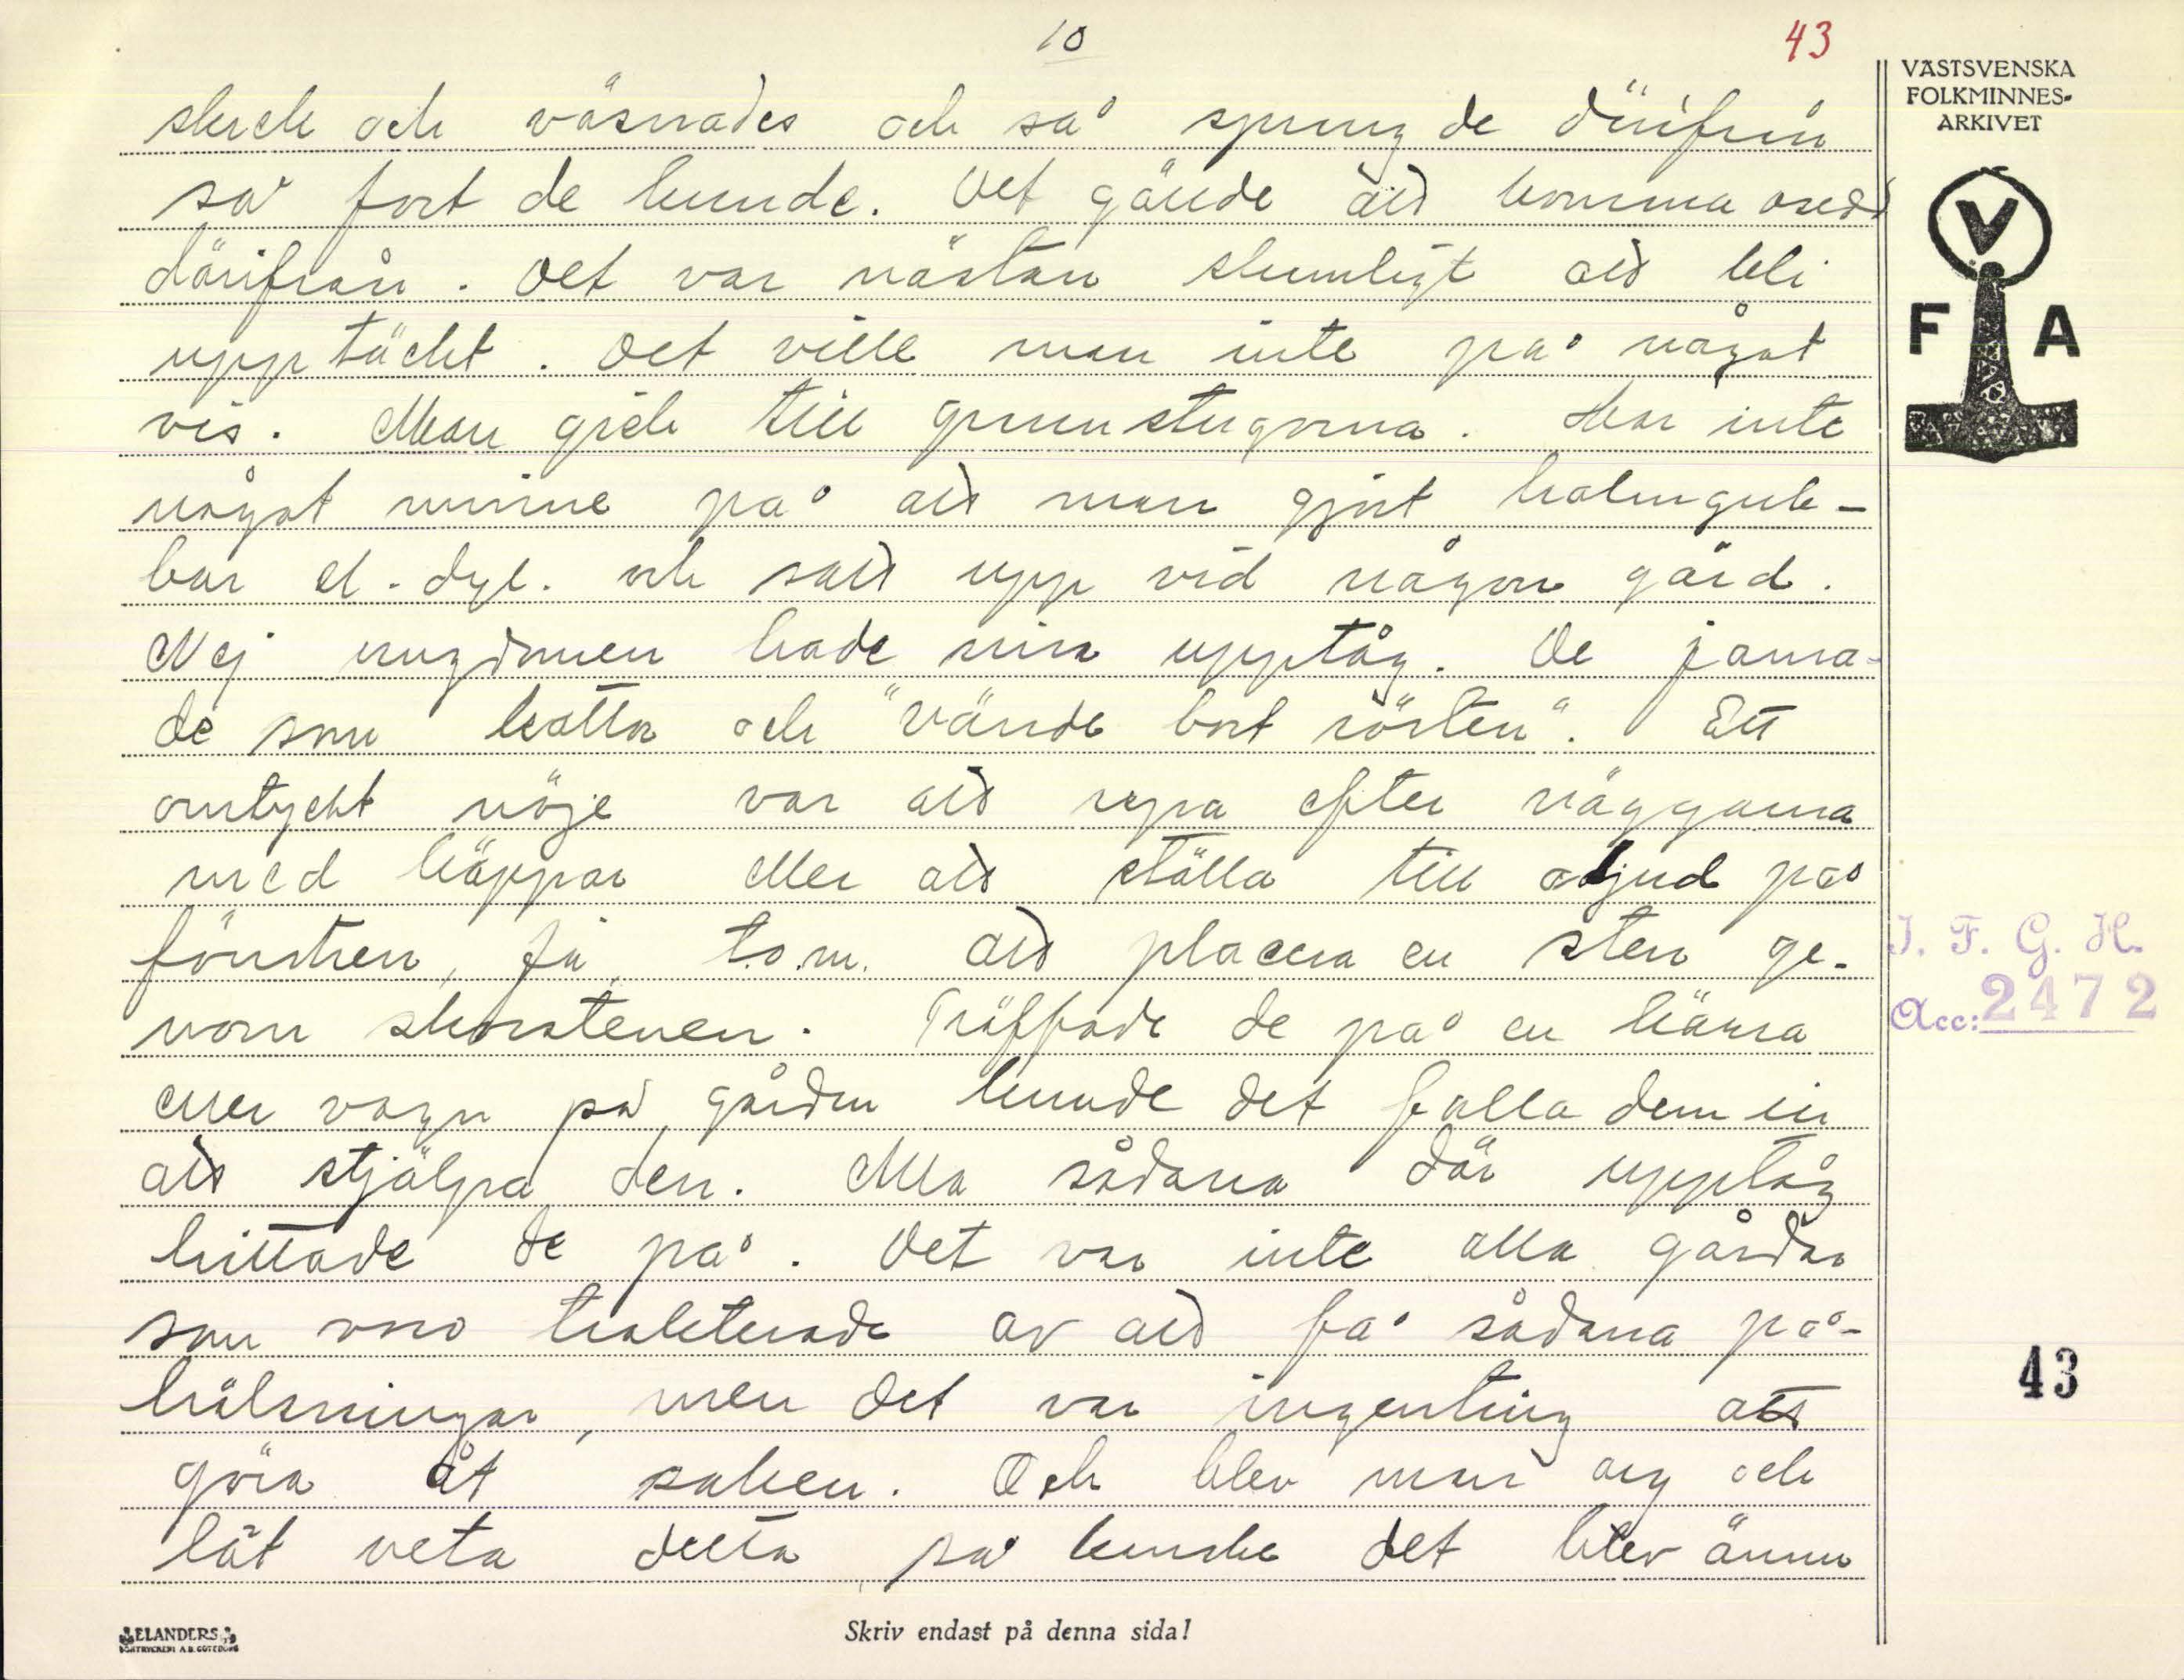 10
43
skrek och väsnades och så sprung de därifrån
så fort de kunde. Det gällde att komma osedd
därifrån. Det var nästan skumligt att bli
upptäckt. Det ville man inte på något
vis. Man gick till grannstugorna. Har inte
något minne på att man gjort halmgub-
bar el. dyl. och satt upp vid någon gård.
Nej ungdomen hade sina upptåg. De jama-
de som kattor och "vände bort rösten". Ett
omtyckt nöje var att repa efter väggarna
med käppar eller att ställa till oljud på
fönstren, ja, t.o.m. att placera en sten ge-
nom skorstenen. Träffade de på en kärra
eller vagn på gården kunde det falla dem in
att stjälpa den. Alla sådana där upptåg
hittade de på. Det var inte alla gårdar
som voro trakterade av att få sådana på-
hälsningar, men det var ingenting att
göra åt saken. Och blev man arg och
lät veta detta, så kanske det blev ännu
VÄSTSVENSKA
FOLKMINNES-
ARKIVET
V
F A
I. F. G. H.
Acc: 2472
43
ELANDERS
BOKTRYCKERI A.B. GÖTEBORG
Skriv endast på denna sida!